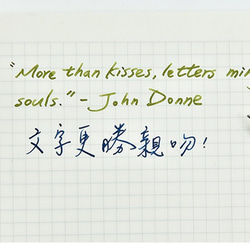 "More than kisses, letters
souls." - John Donne
文字更勝親吻!